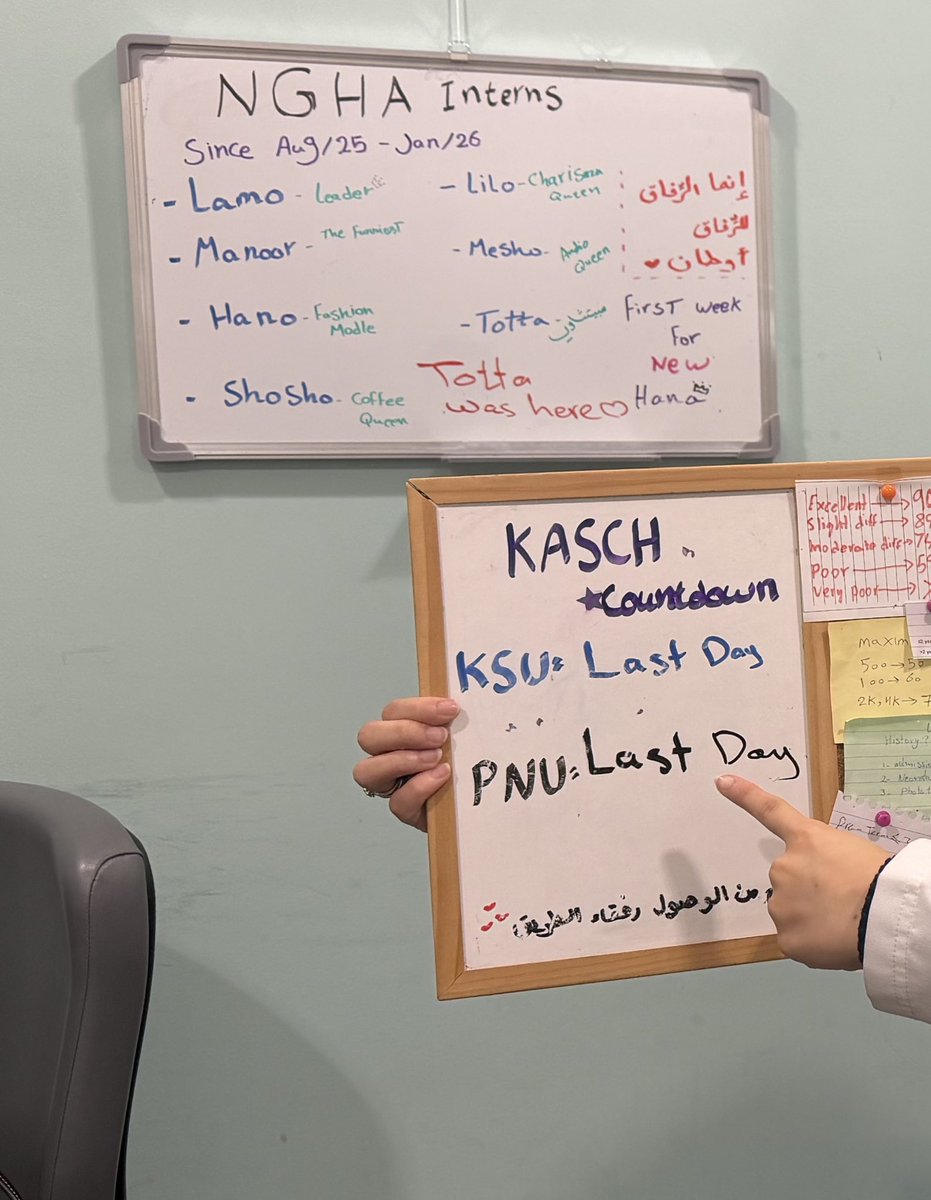 NGHA Interns
Since Aug/25 - Jan/26
- Lamo - Leader
- Manoor - The Funniest
- Hano - Fashion Modle
- Shosho - Coffee Queen
- Lilo - Charisma Queen
- Mesho - Audio Queen
- Totta -
Totta
was here
إنما الرِّفاق
للرِّفاق
أوطان
First week
For
New
Hana
KASCH
Countdown
KSU: Last Day
PNU: Last Day
من الوصول رفقاء الطريق
Excellent
Slight diff
Moderate diff
Poor
Very Poor
500 → 50
100 → 60
History?